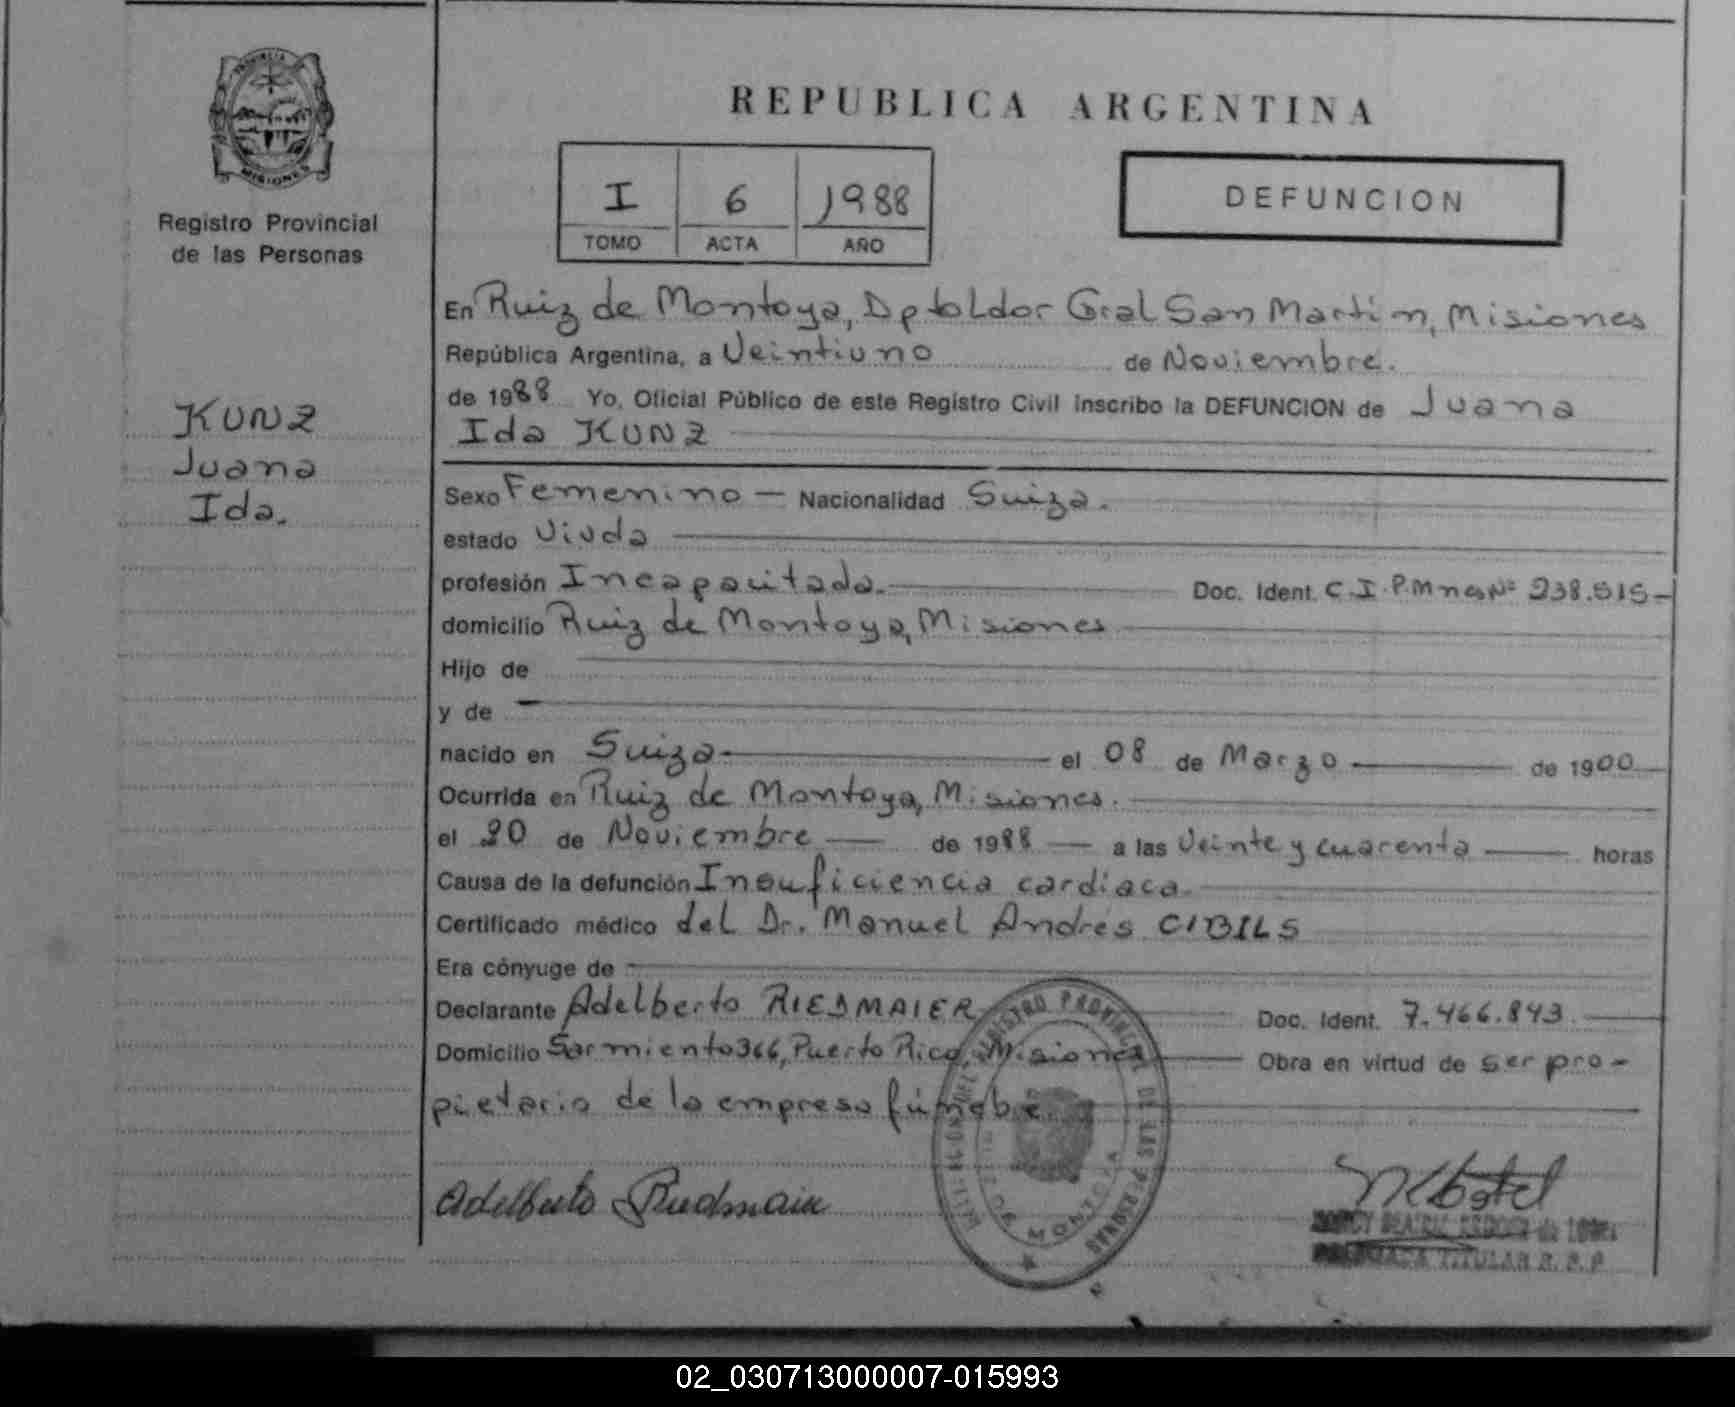 PROVINCIA
MISIONES
Registro Provincial
de las Personas
KUNZ
Juana
Ida.
REPUBLICA ARGENTINA
I 6 1988
TOMO ACTA AÑO
DEFUNCION
En Ruiz de Montoya, Dpto Ldor Gral San Martín, Misiones
República Argentina, a Veintiuno de Noviembre.
de 1988 Yo, Oficial Público de este Registro Civil inscribo la DEFUNCION de Juana
Ida KUNZ
Sexo Femenino — Nacionalidad Suiza.
estado Viuda
profesión Incapacitada. Doc. Ident. C.I.P.Mnes Nº 238.515-
domicilio Ruiz de Montoya, Misiones
Hijo de
y de
nacido en Suiza el 08 de Marzo de 1900
Ocurrida en Ruiz de Montoya, Misiones.
el 20 de Noviembre de 1988 a las Veinte y cuarenta horas
Causa de la defunción Insuficiencia cardíaca.
Certificado médico del Dr. Manuel Andrés CIBILS
Era cónyuge de
Declarante Adelberto RIEDMAIER Doc. Ident. 7.466.843.
Domicilio Sarmiento 366, Puerto Rico, Misiones Obra en virtud de ser pro-
pietario de la empresa fúnebre.
REGISTRO PROVINCIAL DE LAS PERSONAS
MONTOYA
Adelberto Riedmaier
TITULAR R. P. P.
02_030713000007-015993